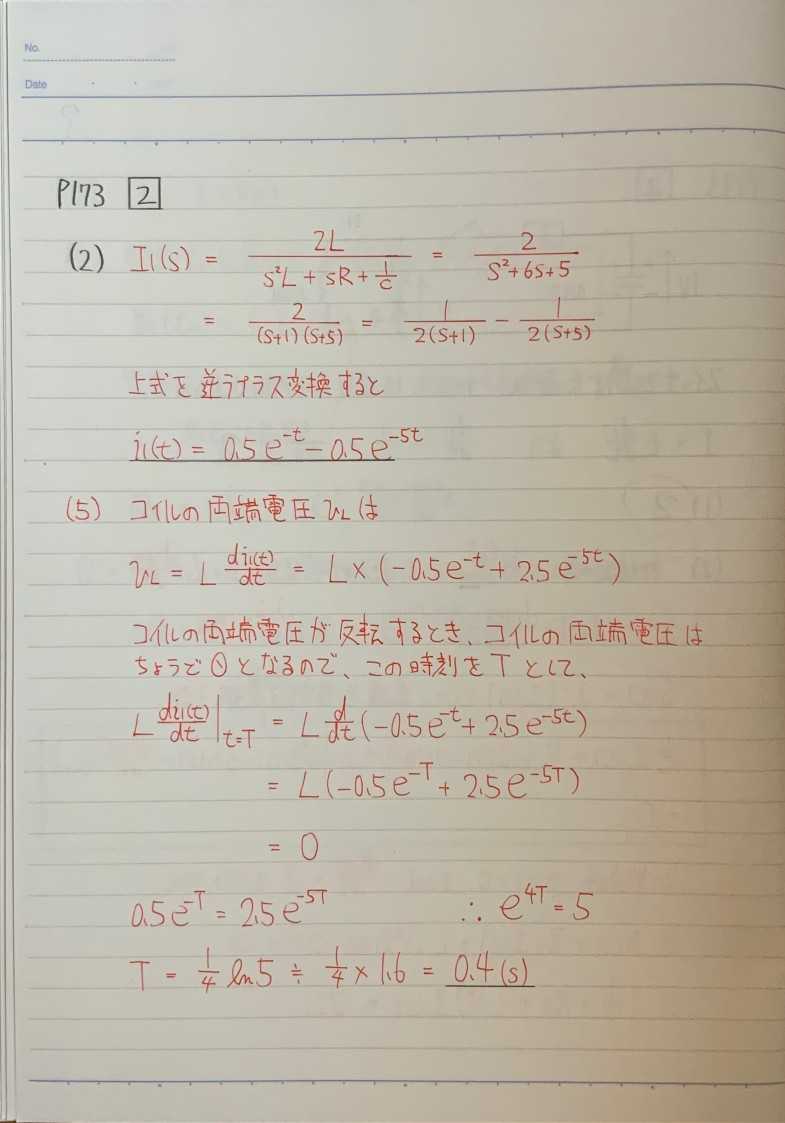 No.
Date
P173 [2]
(2) I₁(s) = 2L / (s²L + sR + 1/C) = 2 / (s²+6s+5)
= 2 / ((s+1)(s+5)) = 1 / (2(s+1)) − 1 / (2(s+5))
上式を逆ラプラス変換すると
i₁(t) = 0.5e^{-t} − 0.5e^{-5t}
(5) コイルの両端電圧 v_L は
v_L = L di₁(t)/dt = L×(−0.5e^{-t} + 2.5e^{-5t})
コイルの両端電圧が反転するとき、コイルの両端電圧は
ちょうど 0 となるので、この時刻を T として、
L di₁(t)/dt |_{t=T} = L d/dt (−0.5e^{-t} + 2.5e^{-5t})
= L(−0.5e^{-T} + 2.5e^{-5T})
= 0
0.5e^{-T} = 2.5e^{-5T} ∴ e^{4T} = 5
T = 1/4 ln5 ≒ 1/4 × 1.6 = 0.4 (s)